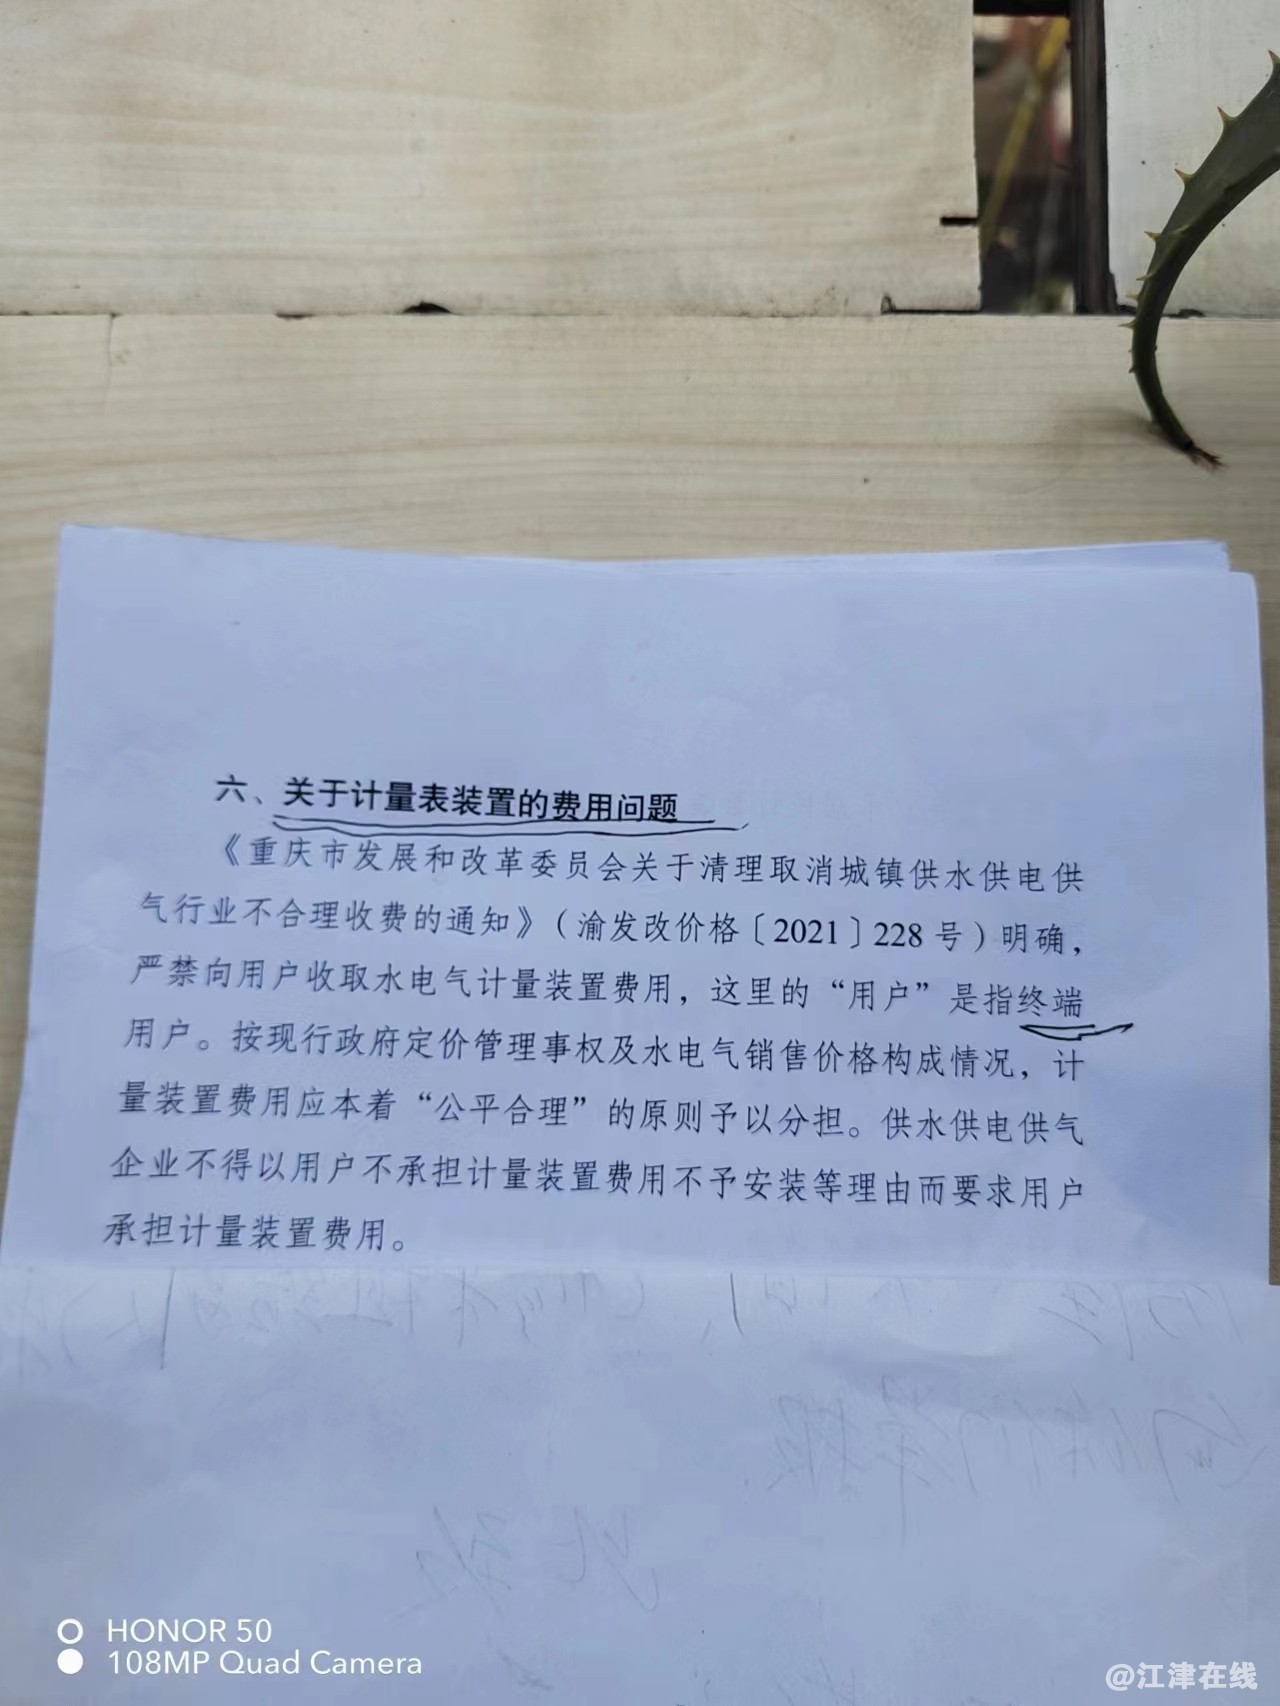 六、关于计量表装置的费用问题
《重庆市发展和改革委员会关于清理取消城镇供水供电供
气行业不合理收费的通知》（渝发改价格〔2021〕228号）明确，
严禁向用户收取水电气计量装置费用，这里的“用户”是指终端
用户。按现行政府定价管理事权及水电气销售价格构成情况，计
量装置费用应本着“公平合理”的原则予以分担。供水供电供气
企业不得以用户不承担计量装置费用不予安装等理由而要求用户
承担计量装置费用。
HONOR 50
108MP Quad Camera
@江津在线